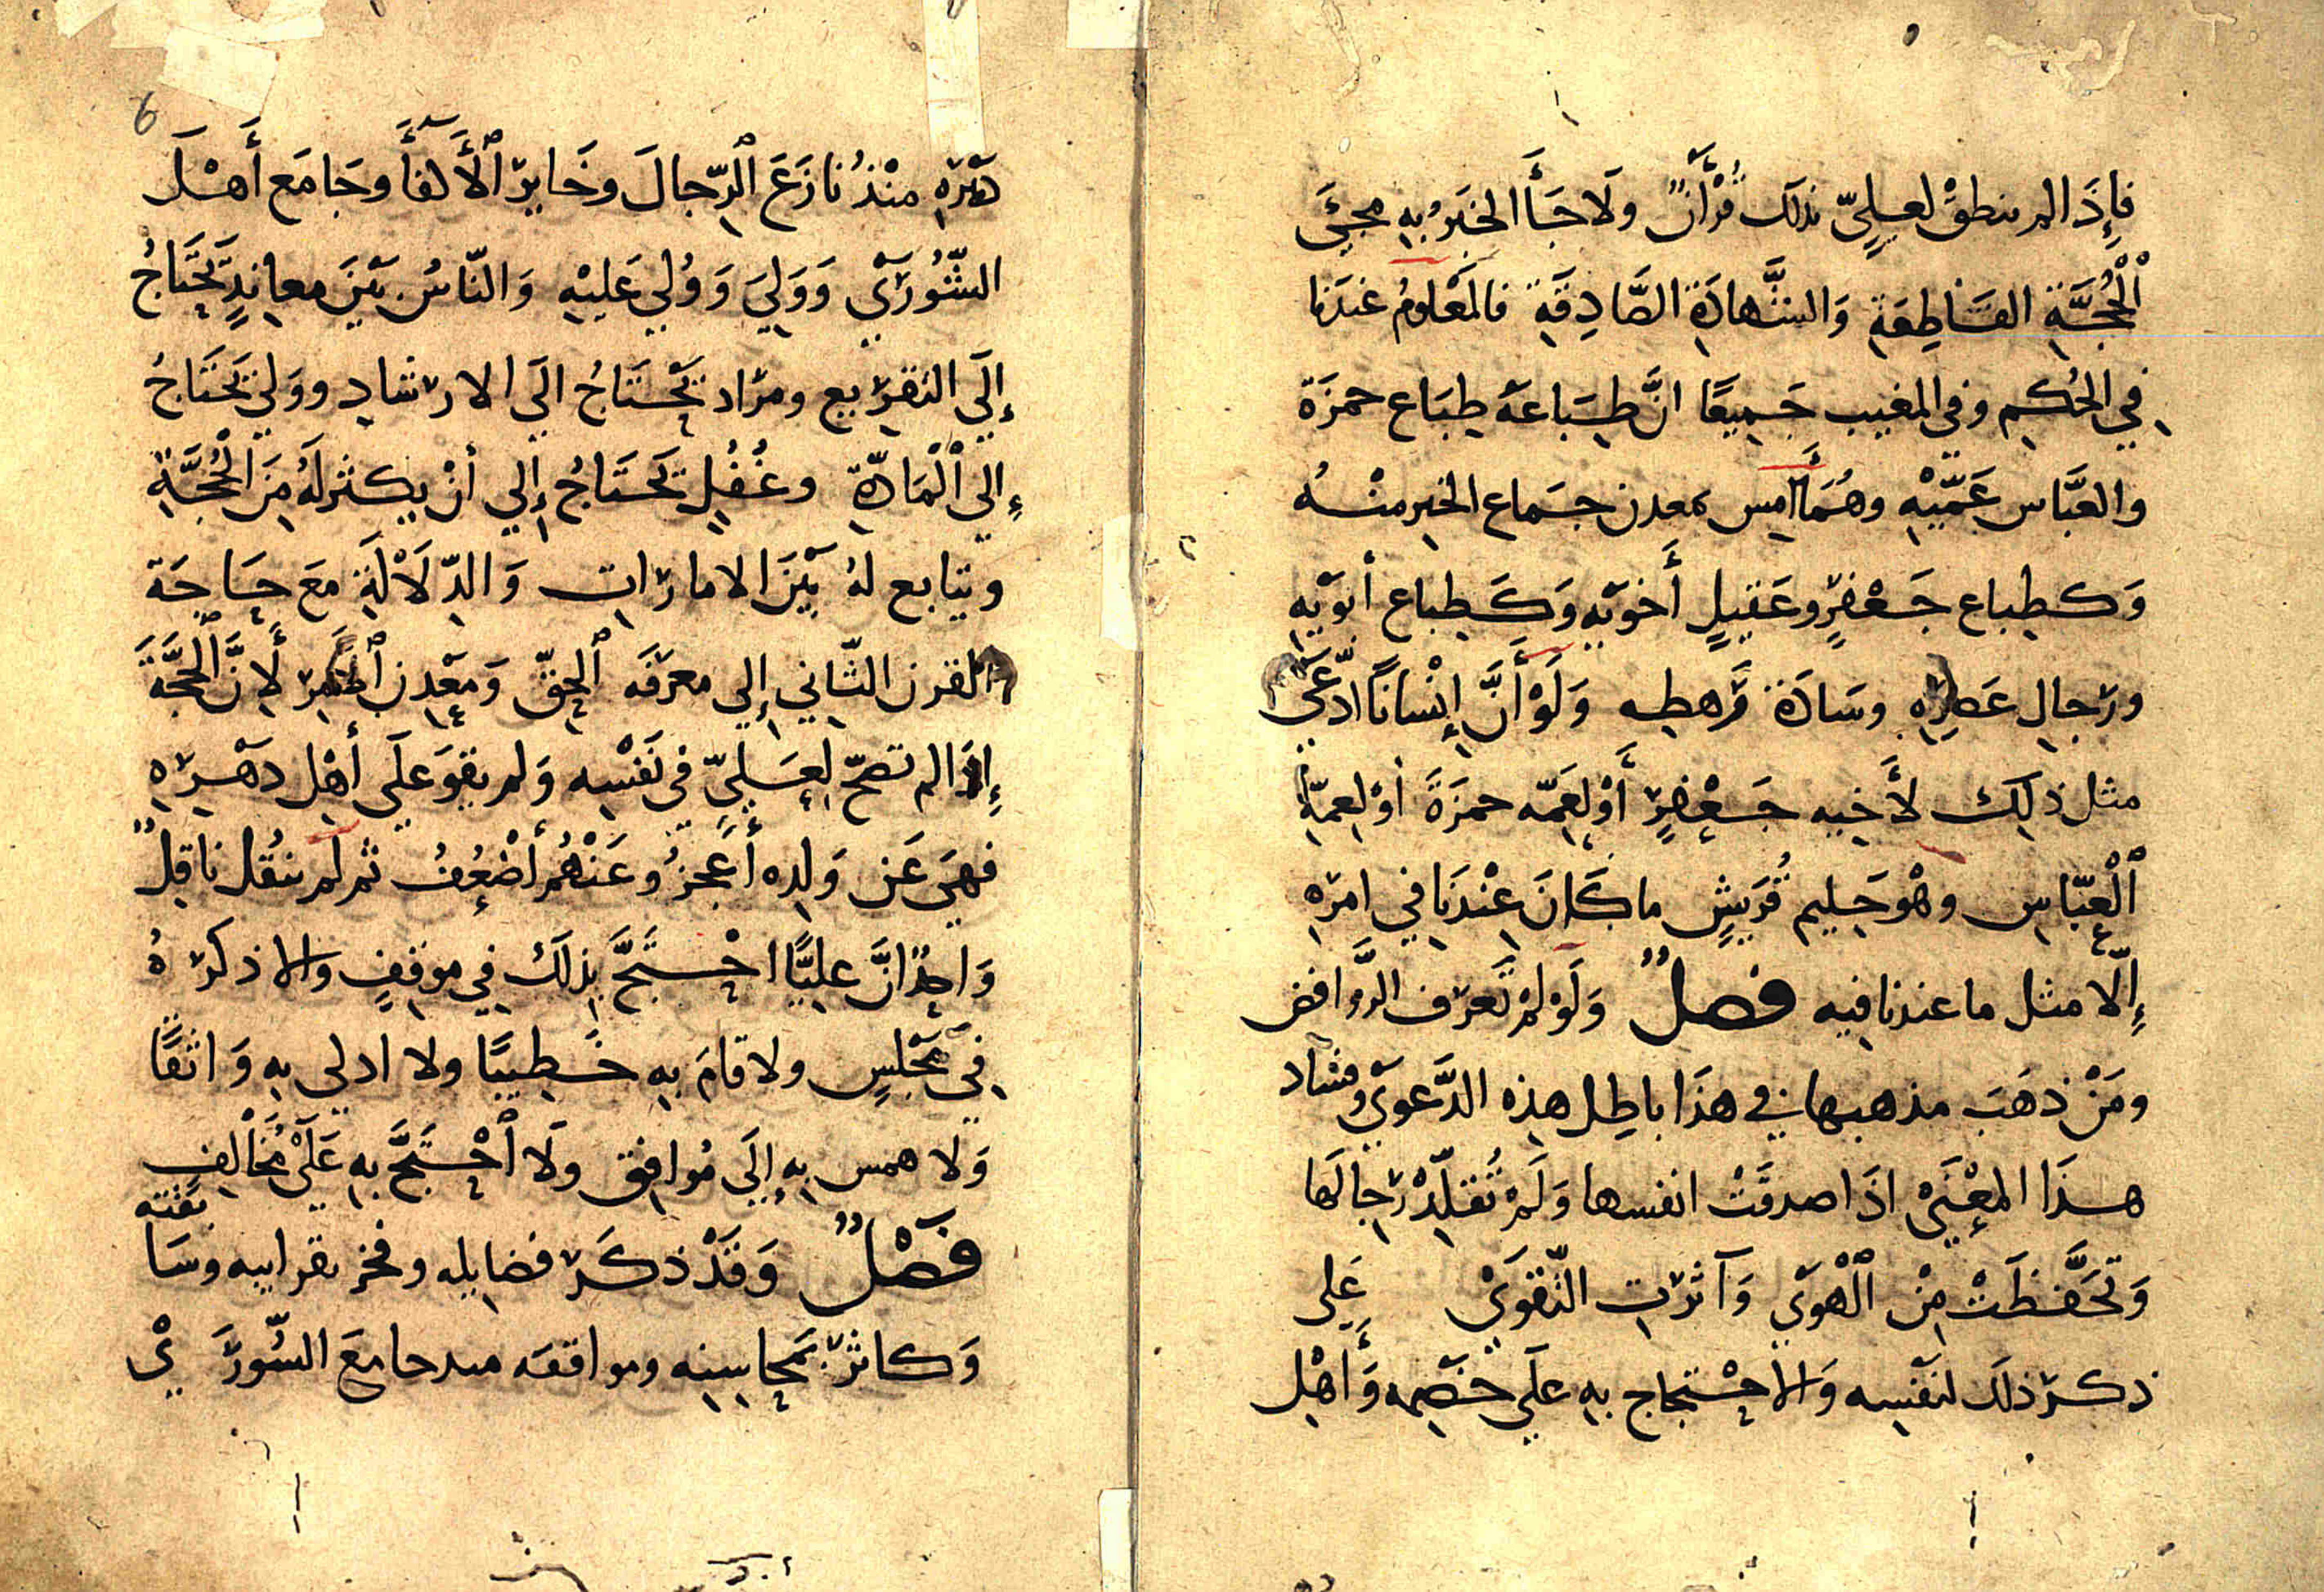 فإِذَا لم ينطقْ لعليٍّ بذلك قُرْأَنٌ ولَا جَأَ الخبَرُ بهِ مجيئَ
ٱلْحُجَّةِ القَاطِعَةِ وَالشَّهادَةِ الصَّادِقَةِ فالمَعْلومُ عندَنا
في الحُكم وفي المغيب جَمِيعًا انَّ طِبَاعَهُ طِبَاع حمزَة
والعَبَّاس عَمَّيْهِ وهُمَا أَمس بمعدن جمَاع الخير منْهُ
وَكطِباع جَعْفرٍ وعَقيلٍ أَخوَيْهِ وَكَطِباع أبوَيْهِ
ورجالِ عَصرِهِ وسَادَة رَهطِه وَلَوْ أَنَّ إِنْسانًا ادّعَى
مثل ذلِكَ لأَخيه جَعْفرٍ أَوْ لِعَمّه حمزَةَ أوْ لِعمّهِ
ٱلْعبّاسِ وهْو حَلِيم قُرَيشٍ ما كَانَ عِنْدَنَا في امرهِ
إِلّا مثل ما عندنا فيه فصلٌ وَلَوْ لمْ تَعرف الرَّوافض
ومَنْ ذهَبَ مذهبها في هذَا باطِل هذِه الدَّعوَىٰ وفساد
هذَا المعْنَىْ اذَا صدقَتْ انفسها وَلَمْ تُقلّدْ رجالَها
وَتحَفَّظَتْ مِنْ ٱلْهوَي وَآثرت التّقوَيْ عَلى
ذكر ذلكَ لنَفْسِه وَالاحْتجاج بهِ علَى خَصْمِه وَأَهْلِ
دَهْرِهِ منْذُ نازَعَ ٱلرّجالَ وخَايرَ ٱلأَكفَأَ وجَامَعَ أَهْلَ
الشّورَىْ وَوَلِيَ وَوُلِي عَليْهِ وَالنّاسُ بَيْنَ معانِدٍ يَحْتَاجُ
إِلَى التقريع ومرَاد يَحْتَاجُ الَى الارشاد ووَلِيّ يَحْتَاجُ
إِلي ٱلْمَادّةِ وغُفُلٍ يَحْتَاجُ إِلي أنْ يكثر لهُ مِنَ الْحُجَّةِ
ويتابع لهُ بَيْنَ الامارات وَالدّلَالَةِ معَ حَاجَة
القرن الثّاني إِلي معرَفَه ٱلحقّ وَمَعْدِن ٱلأَمر لأَنَّ الْحجَّةَ
إِذَا لم تصحّ لعَليّ في نَفْسِه وَلم يقوَ علَى أهْلِ دَهْرهِ
فهيَ عَن وَلدِه أَعجزُ وعَنْهُم أضْعُفُ ثم لم ينقُل ناقِلٌ
وَاحدٌ انَّ عليًّا احْتَجَّ بذلَكَ فِي موقفٍ ولا ذكرَهُ
فِي مَجْلسٍ ولا قامَ بهِ خَطيبًا ولا ادلى بهِ وَاثقًا
وَلا همس بهِ إِلَى مُوافق ولَا ٱحْتَجَّ بهِ عَلَى مُخَالِفٍ
فَصْلٌ وَقَدْ ذكَرَ فضايله وفخر بقرابيه وسَابقته
وَكاثرَ بمَحاسِنِه ومواقفه مىد جامعَ الشّورَيْ